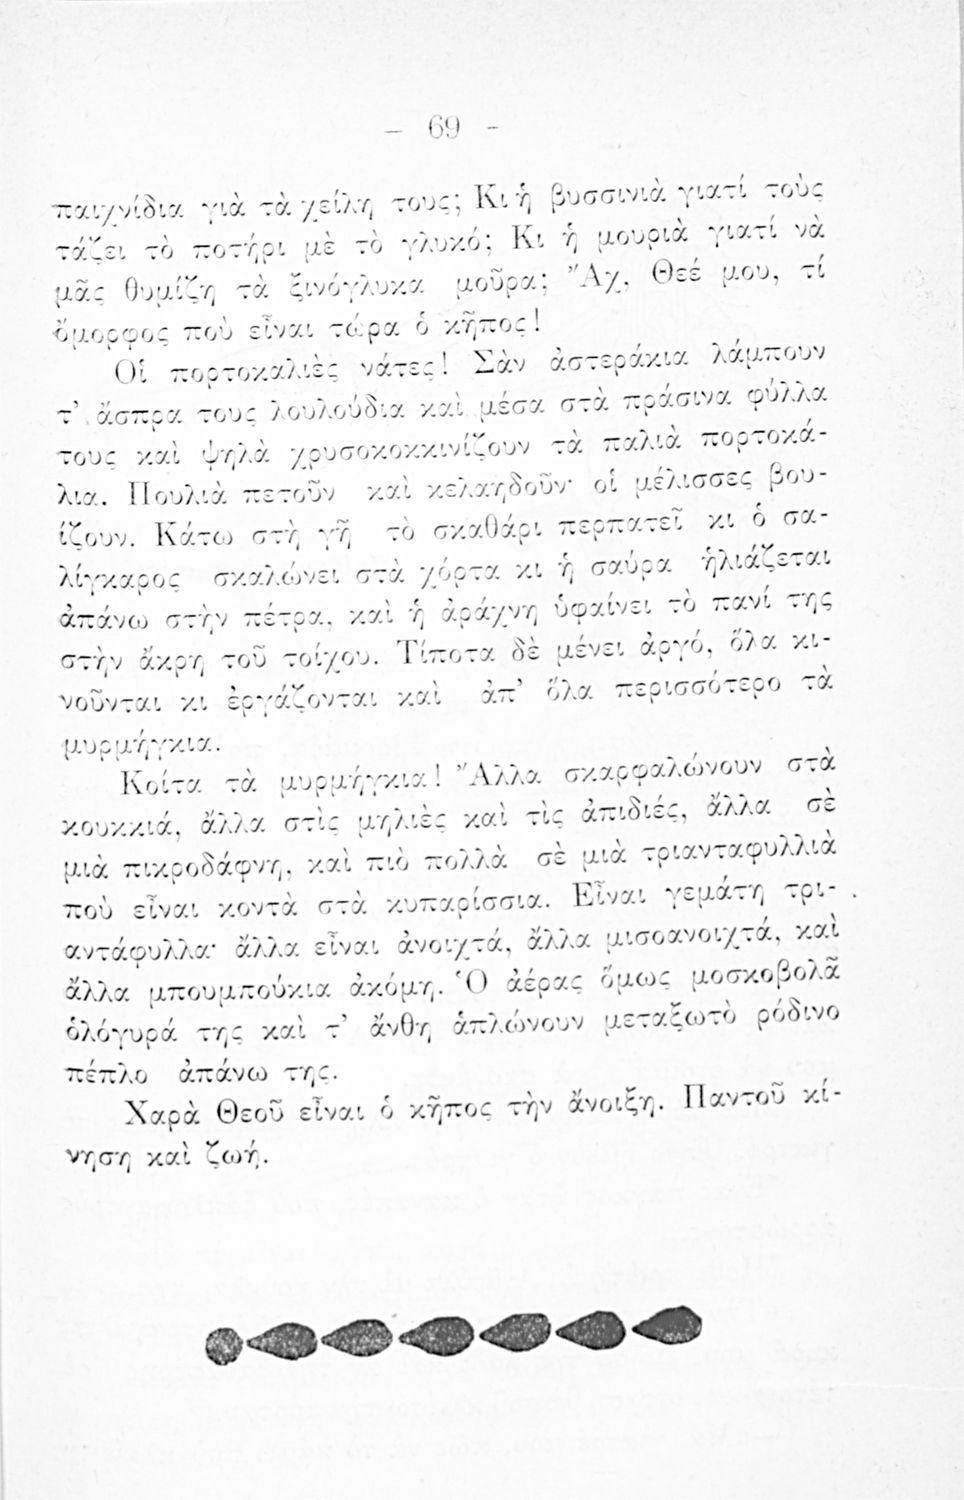 – 69 –
παιχνίδια γιὰ τὰ χείλη τους; Κι ἡ βυσσινιὰ γιατί τοὺς
τάζει τὸ ποτήρι μὲ τὸ γλυκό; Κι ἡ μουριὰ γιατί νὰ
μᾶς θυμίζῃ τὰ ξινόγλυκα μοῦρα; Ἄχ, Θεέ μου, τί
ὄμορφος ποὺ εἶναι τώρα ὁ κῆπος!
Οἱ πορτοκαλιὲς νάτες! Σὰν ἀστεράκια λάμπουν
τ’ ἄσπρα τους λουλούδια καὶ μέσα στὰ πράσινα φύλλα
τους καὶ ψηλὰ χρυσοκοκκινίζουν τὰ παλιὰ πορτοκά-
λια. Πουλιὰ πετοῦν καὶ κελαηδοῦν· οἱ μέλισσες βου-
ίζουν. Κάτω στὴ γῆ τὸ σκαθάρι περπατεῖ κι ὁ σα-
λίγκαρος σκαλώνει στὰ χόρτα κι ἡ σαύρα ἡλιάζεται
ἀπάνω στὴν πέτρα, καὶ ἡ ἀράχνη ὑφαίνει τὸ πανί της
στὴν ἄκρη τοῦ τοίχου. Τίποτα δὲ μένει ἀργό, ὅλα κι-
νοῦνται κι ἐργάζονται καὶ ἀπ’ ὅλα περισσότερο τὰ
μυρμήγκια.
Κοίτα τὰ μυρμήγκια! Ἄλλα σκαρφαλώνουν στὰ
κουκκιά, ἄλλα στὶς μηλιὲς καὶ τὶς ἀπιδιές, ἄλλα σὲ
μιὰ πικροδάφνη, καὶ πιὸ πολλὰ σὲ μιὰ τριανταφυλλιὰ
ποὺ εἶναι κοντὰ στὰ κυπαρίσσια. Εἶναι γεμάτη τρι-
αντάφυλλα· ἄλλα εἶναι ἀνοιχτά, ἄλλα μισοανοιχτά, καὶ
ἄλλα μπουμπούκια ἀκόμη. Ὁ ἀέρας ὅμως μοσκοβολᾶ
ὁλόγυρά της καὶ τ’ ἄνθη ἁπλώνουν μεταξωτὸ ρόδινο
πέπλο ἀπάνω της.
Χαρὰ Θεοῦ εἶναι ὁ κῆπος τὴν ἄνοιξη. Παντοῦ κί-
νηση καὶ ζωή.